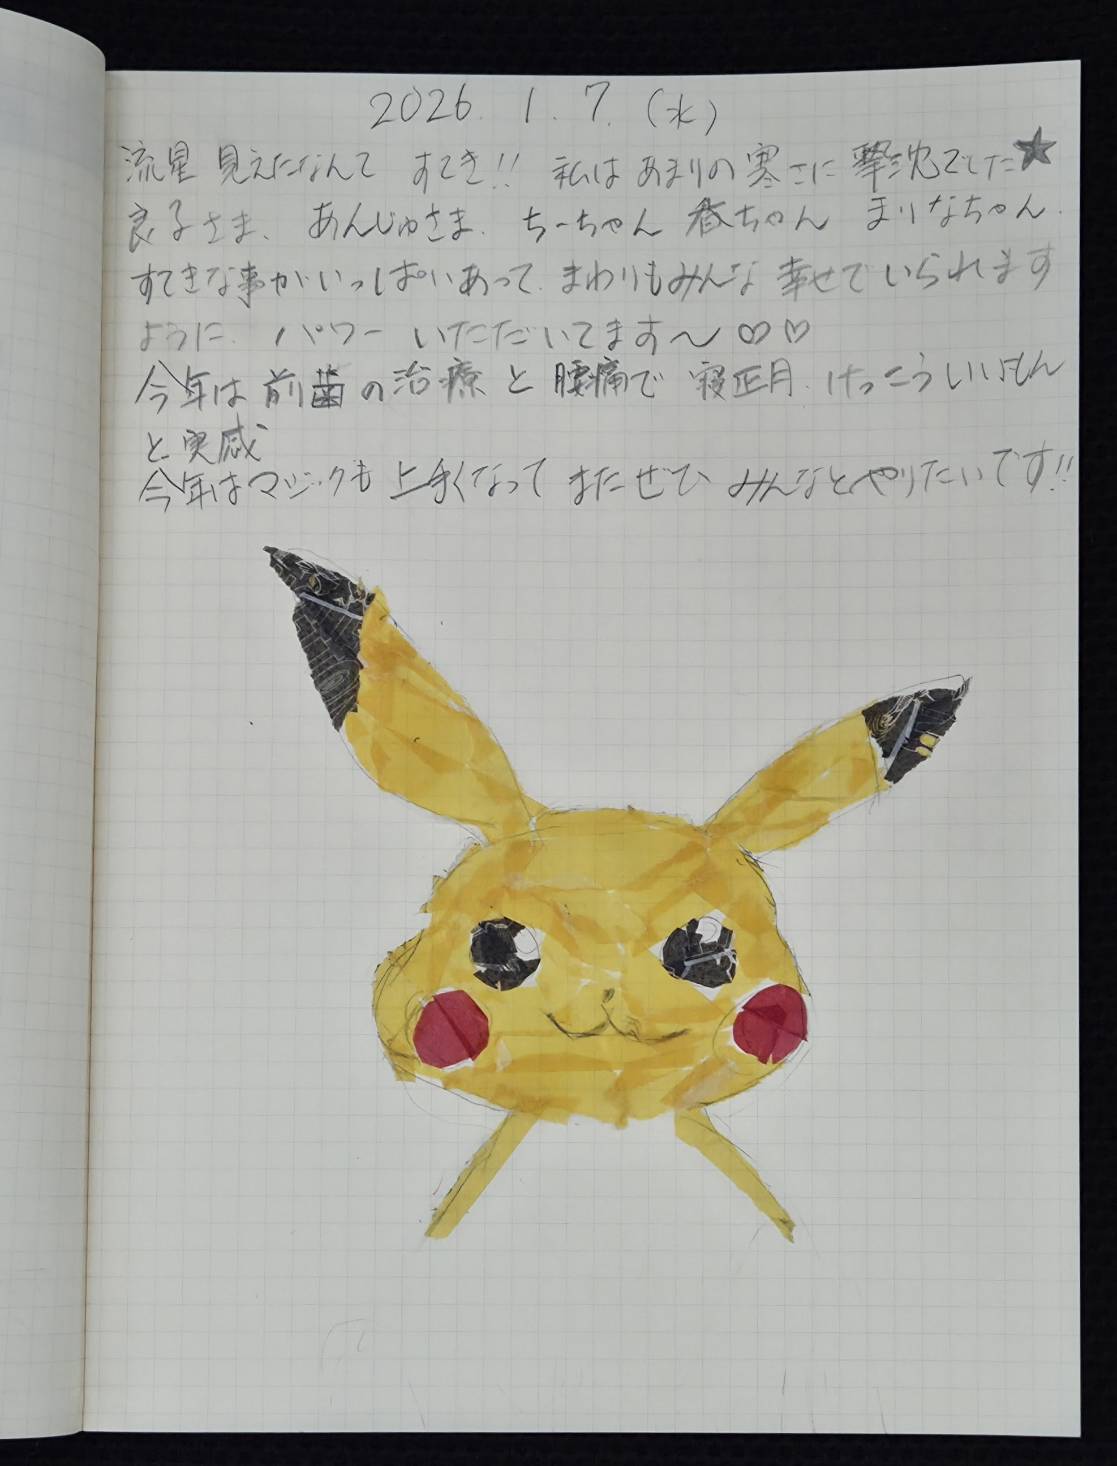 2026. 1. 7. (水)
流星 見えたなんて すてき!! 私は あまりの 寒さに 撃沈でした★
良子さま、 あんじゅさま、 ちーちゃん 春ちゃん まりなちゃん、
すてきな事がいっぱいあって、まわりもみんな 幸せで いられます
ように、 パワー いただいてます〜 ♡♡
今年は 前歯の治療と 腰痛で 寝正月、けっこういいもん
と 実感
今年はマジックも 上手くなって またぜひ みんなとやりたいです!!